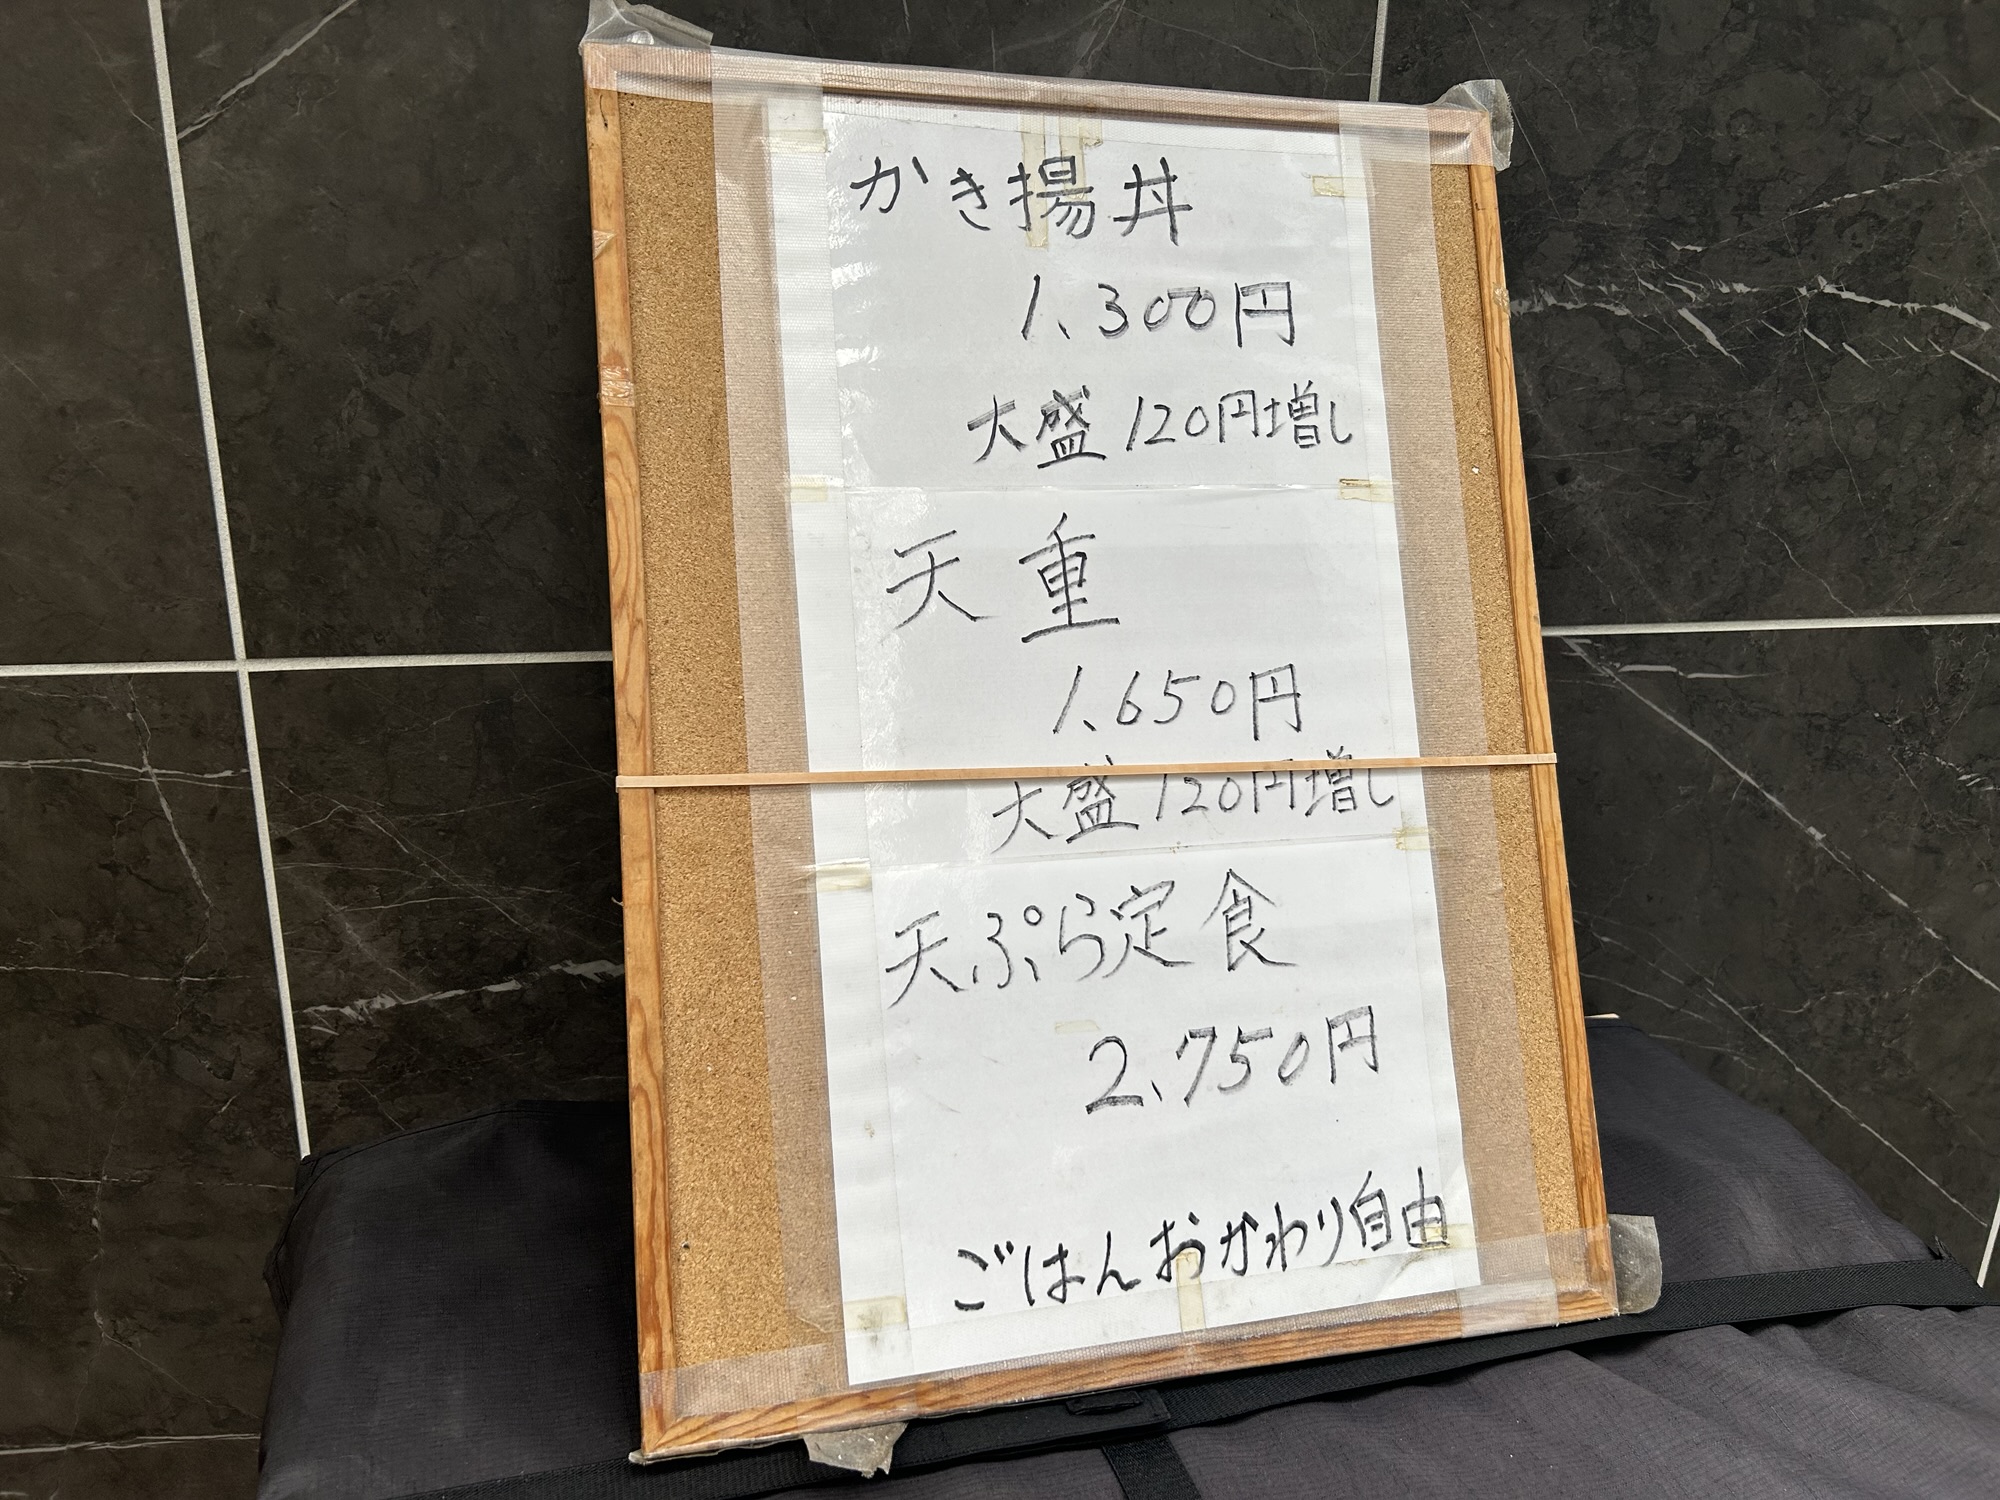 かき揚丼
1、300円
大盛 120円増し
天重
1、650円
大盛 120円増し
天ぷら定食
2、750円
ごはんおかわり自由